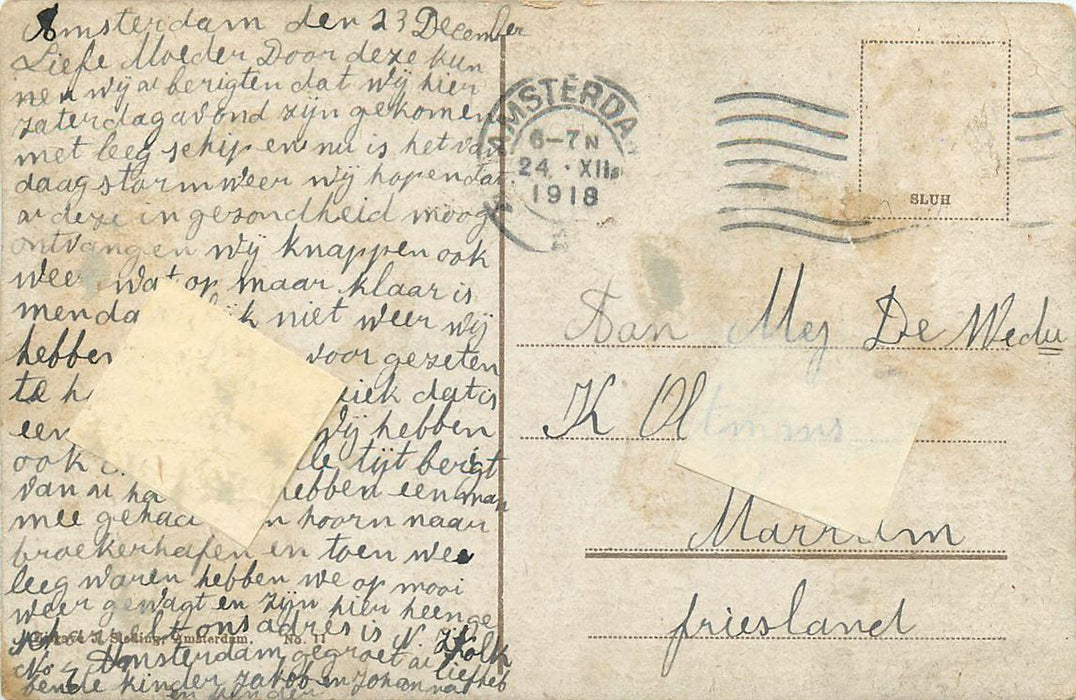 Amsterdam den 23 December
Liefe Moeder Door deze kun
nen wij u berigten dat wij hier
zaterdagavond zijn gekomen
met leeg schip en nu is het van
daag stormweer wij hopen dat
u deze in gezondheid moog
ontvangen wij knappen ook
weer wat op maar klaar is
menda k niet weer wij
hebben voor gezeten
te h iek dat is
een Wij hebben
ook de tijt berigt
van u ha hebben een man
mee gehad n hoorn naar
broekerhafen en toen we
leeg waren hebben we op mooi
weer gewagt en zijn hier heen ge
ons adres is N. Kolk
No Amsterdam gegroet u liefheb
bende kinder Jakob en Johanna
en kinder
Stelling, Amsterdam. No. 11
AMSTERDA
6-7N
24 · XII
1918
SLUH
Aan Mej De Wedu
K Oltmans
Marrum
friesland